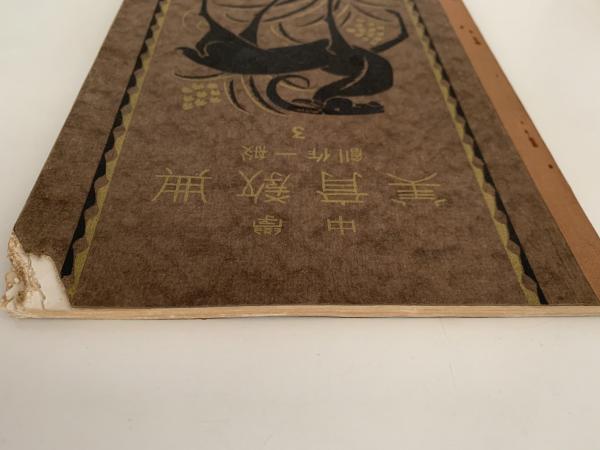 中學
美育教典
創作一般
3